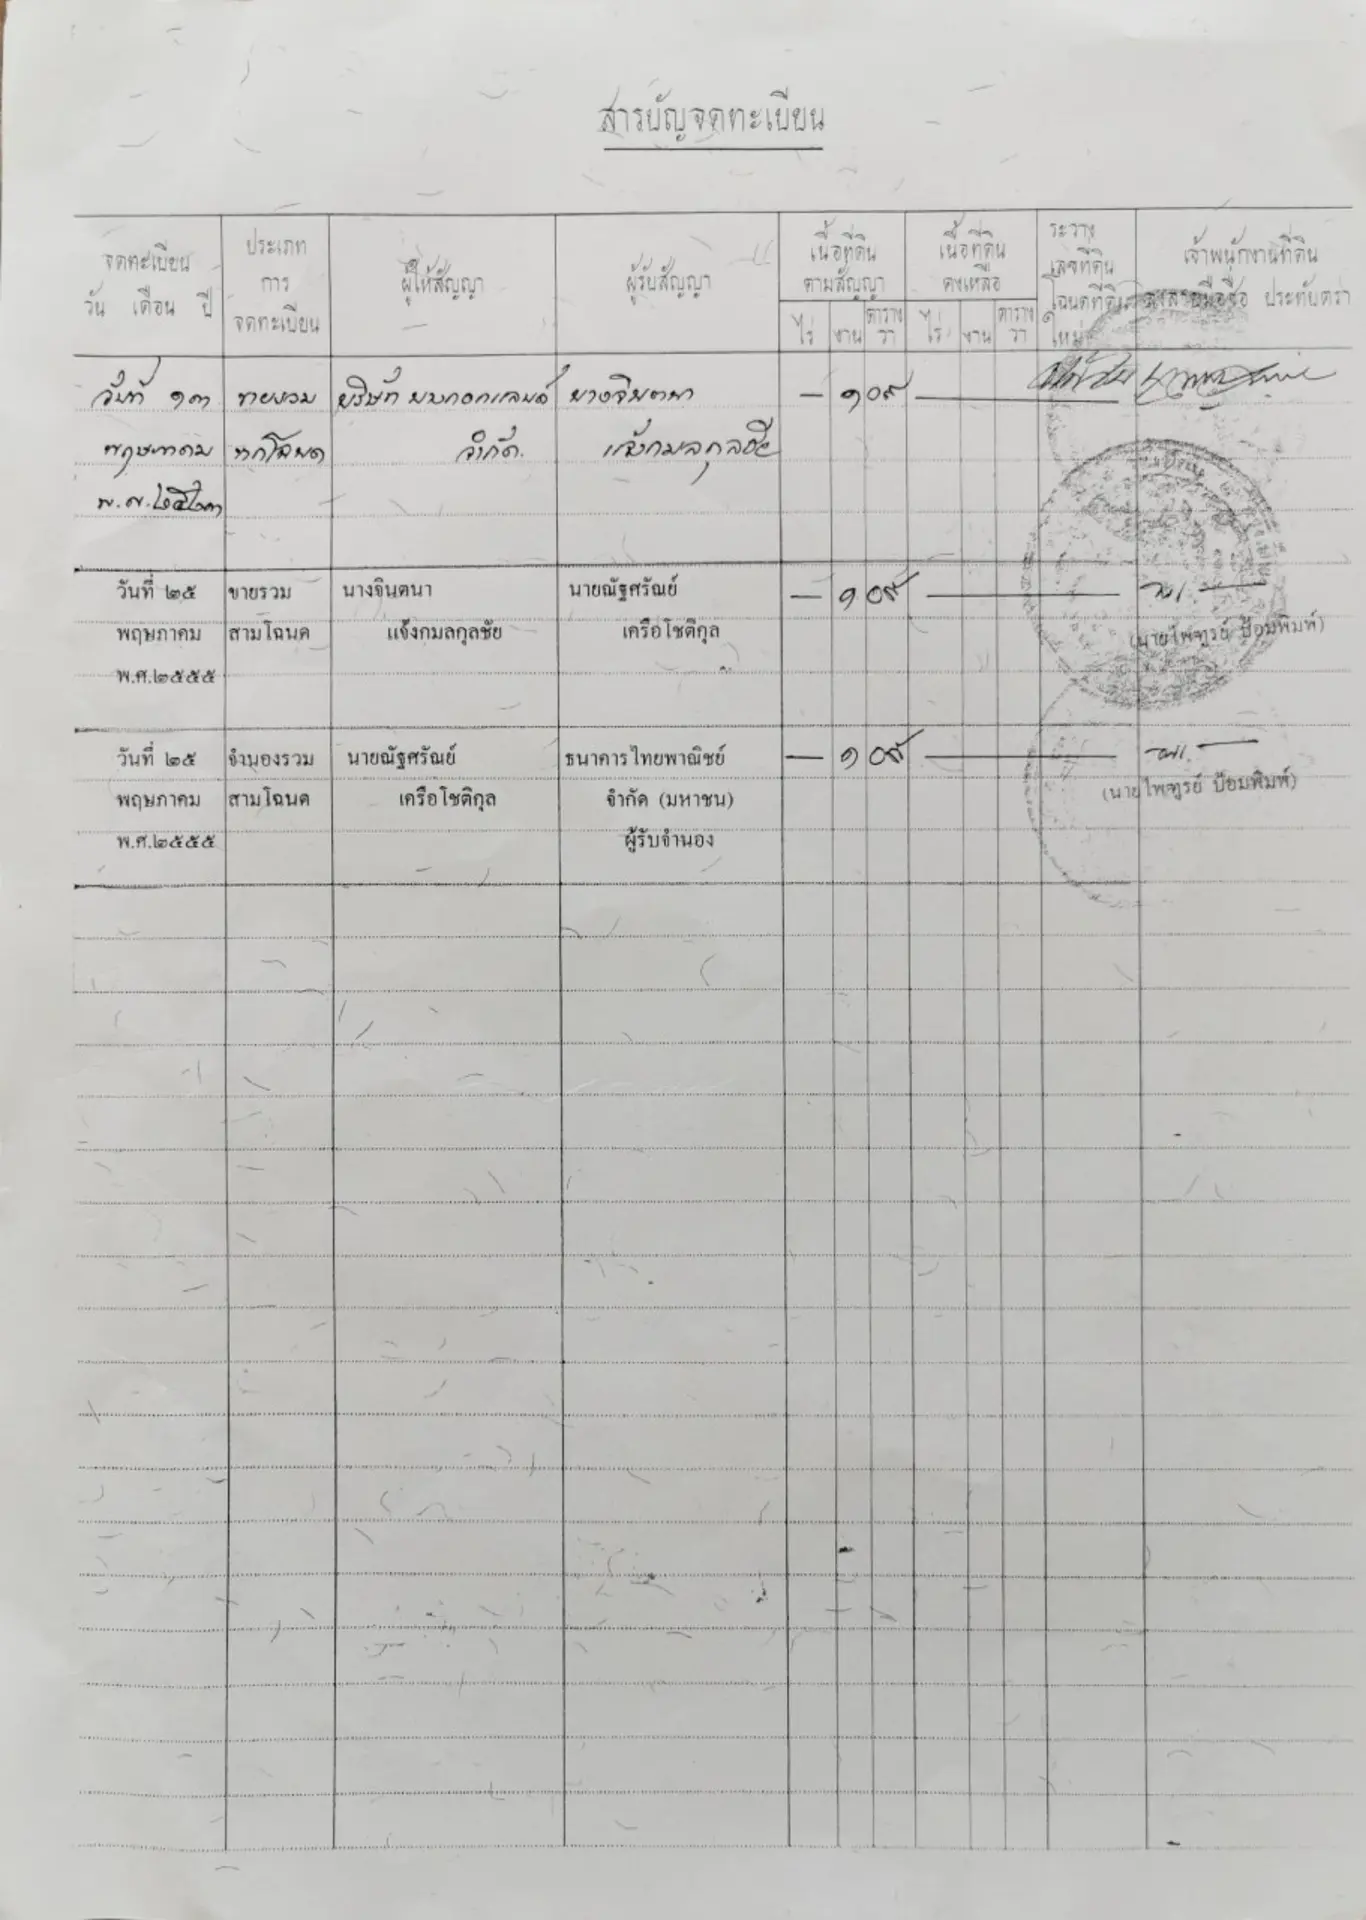 สารบัญจดทะเบียน
จดทะเบียน
วัน เดือน ปี
ประเภท
การ
จดทะเบียน
ผู้ให้สัญญา
ผู้รับสัญญา
เนื้อที่ดิน
ตามสัญญา
ไร่ งาน ตาราง
วา
เนื้อที่ดิน
คงเหลือ
ไร่ งาน ตาราง
วา
ระวาง
เลขที่ดิน
โฉนดที่ดิน
ใหม่
เจ้าพนักงานที่ดิน
ลงลายมือชื่อ ประทับตรา
วันที่ ๑๓ ขายรวม บริษัท บางกอกแลนด์ นางจินตนา — ๑ ๐๙
พฤษภาคม หกโฉนด จำกัด. แจ้งกมลกุลชัย
พ.ศ.
วันที่ ๒๕ ขายรวม นางจินตนา นายณัฐศรัณย์ — ๑ ๐๙
พฤษภาคม สามโฉนด แจ้งกมลกุลชัย เครือโชติกุล
(นายไพฑูรย์ ป้อมพิมพ์)
พ.ศ.๒๕๕๕
วันที่ ๒๕ จำนองรวม นายณัฐศรัณย์ ธนาคารไทยพาณิชย์ — ๑ ๐๙
พฤษภาคม สามโฉนด เครือโชติกุล จำกัด (มหาชน)
(นายไพฑูรย์ ป้อมพิมพ์)
พ.ศ.๒๕๕๕ ผู้รับจำนอง